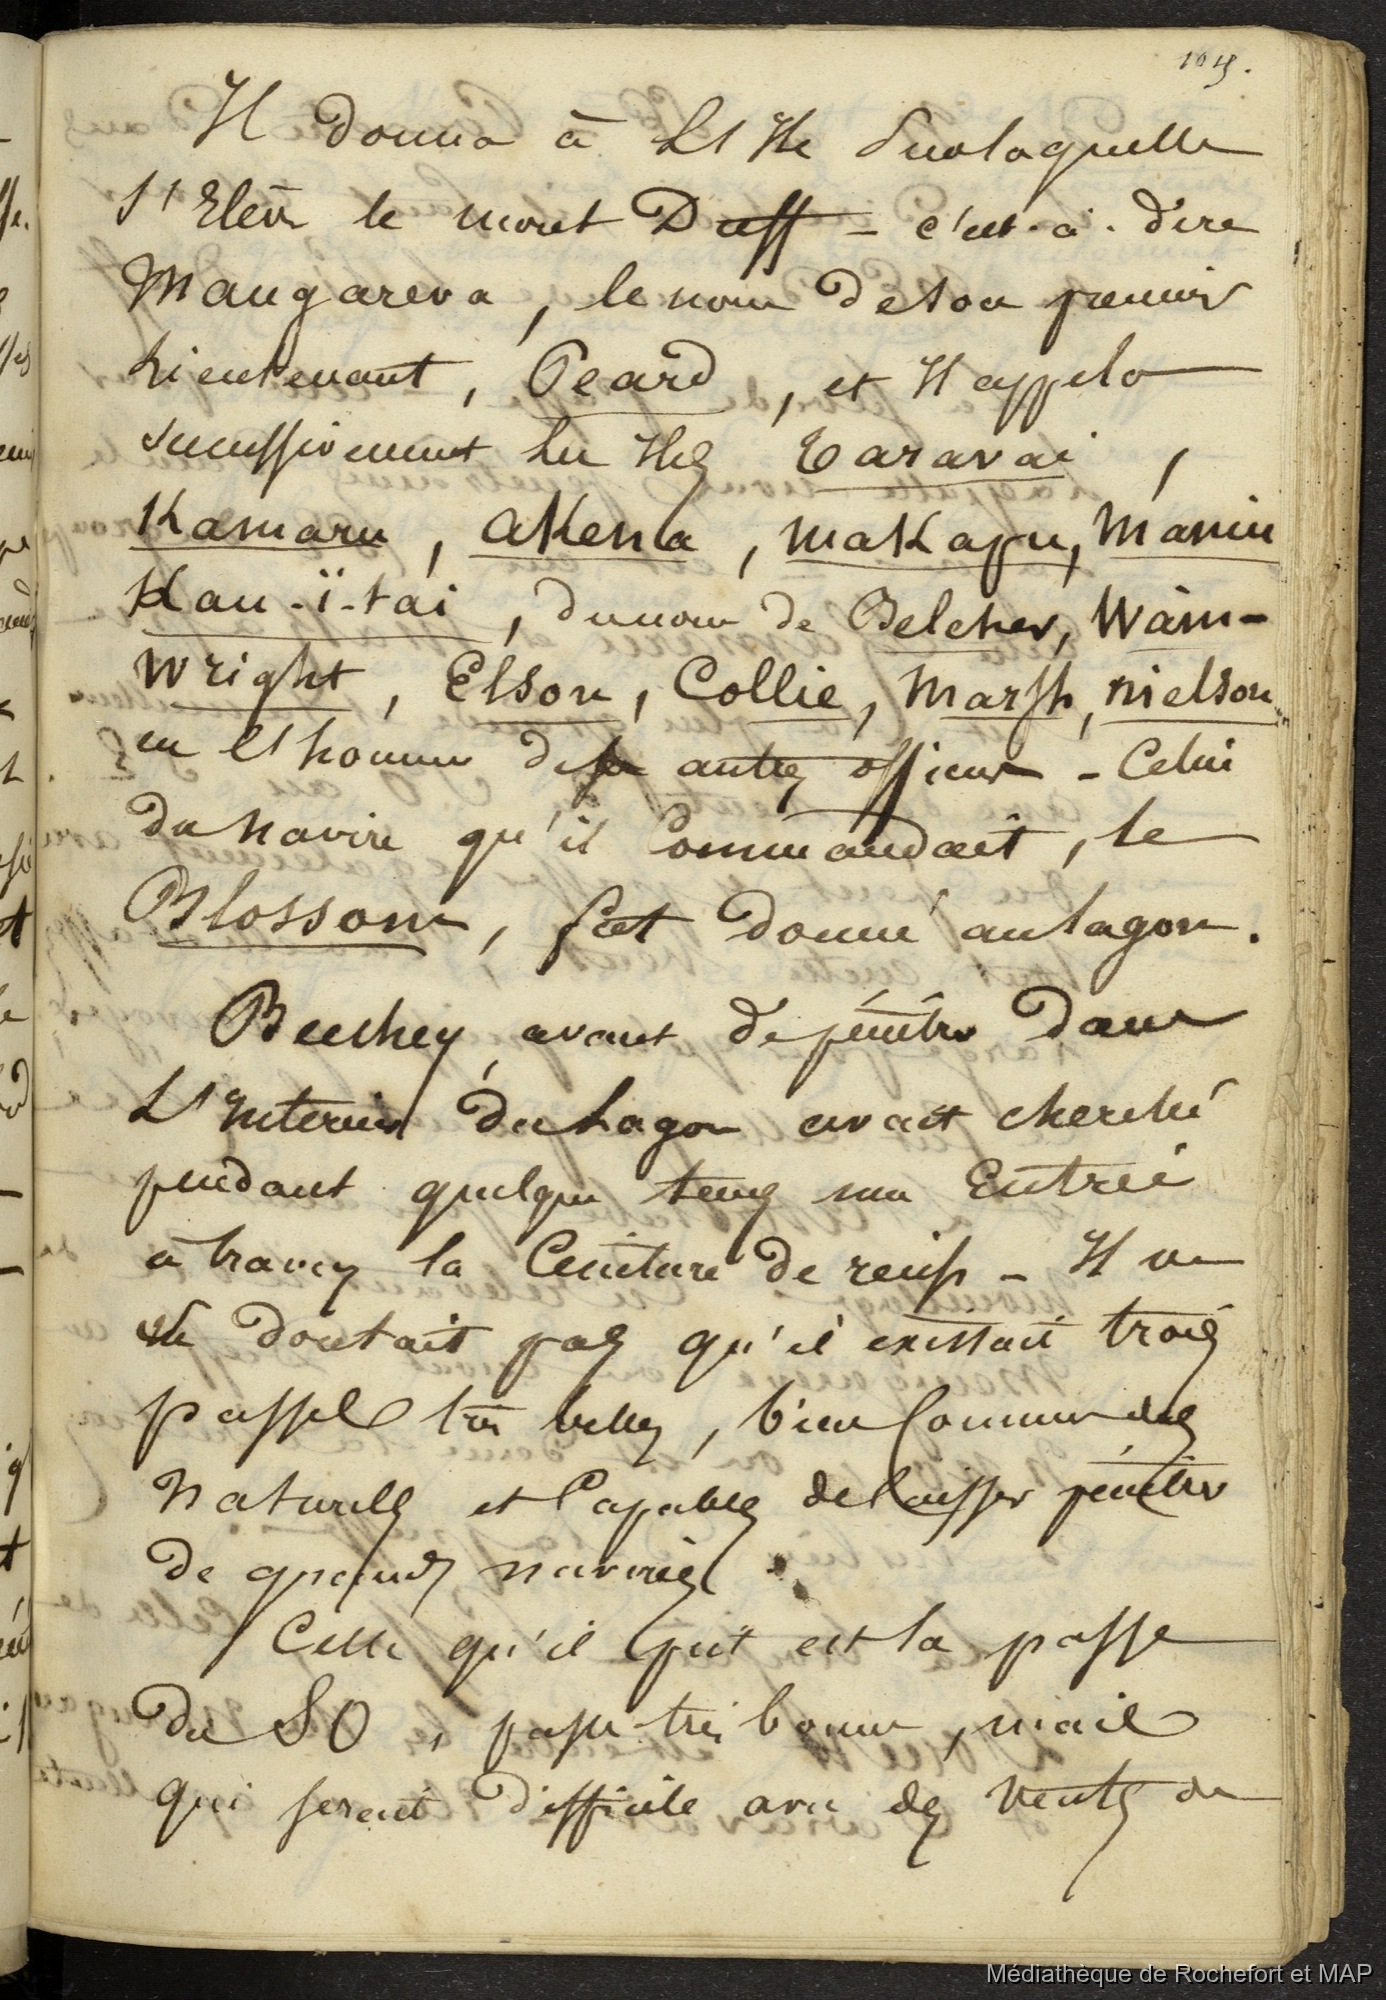 Il donna à l'Ile sur laquelle
s'élève le mont Duff - c'est-à-dire
Mangareva, le nom de son premier
lieutenant, Peard, et il appela
successivement les Iles Taravai,
Kamaru, AKena, maKapu, Manui
Kau-ï-tai, du nom de Belcher, Wain-
Wright, Elson, Collie, Marsh, nielson
en l'honneur de ses autres officiers - Celui
du navire qu'il Commandait, le
Blossom, fut donné au lagon.
Beechey, avant de pénétrer dans
l'Interieur du Lagon avait cherché
pendant quelque temps une Entrée
à travers la Ceinture de récifs - Il ne
se doutait pas qu'il existait trois
passes très belles, bien connues des
naturels et Capables de laisser pénétrer
de grands navires
Celle qu'il prit est la passe
du SO, passe très bonne, mais
qui serait difficile avec des vents de
Médiathèque de Rochefort et MAP